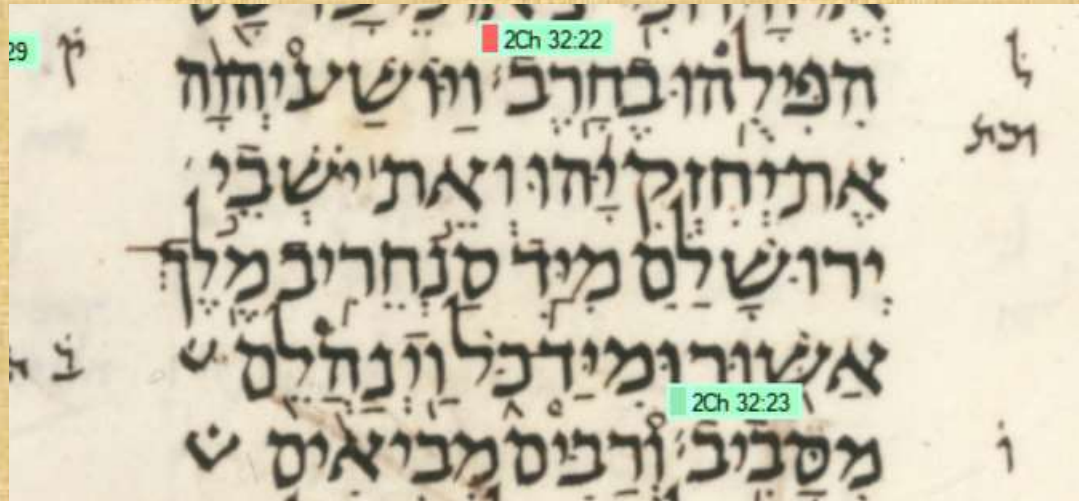 2Ch 32:22
29
הִפִּילֻהוּ בֶחָרֶב׃ וַיּוֹשַׁע יְהוָה
אֶת יְחִזְקִיָּהוּ וְאֵת יֹשְׁבֵי
יְרוּשָׁלִַם מִיַּד סַנְחֵרִיב מֶלֶךְ
אַשּׁוּר וּמִיַּד כֹּל וַיְנַהֲלֵם
2Ch 32:23
מִסָּבִיב׃ וְרַבִּים מְבִיאִים